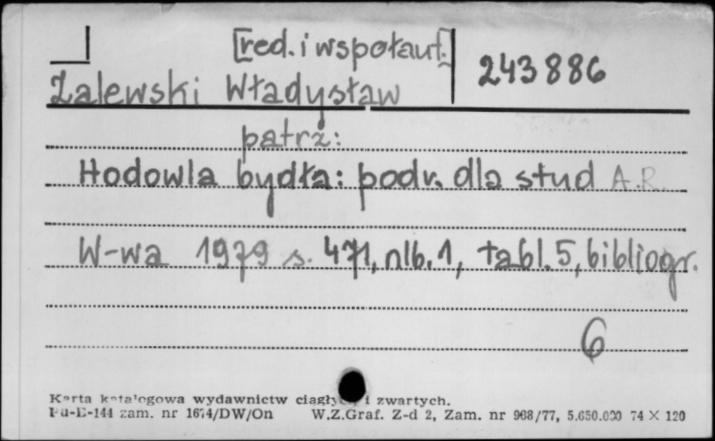 [red. i wspołaut.]
243886
Zalewski Władysław
patrz:
Hodowla bydła: podr. dla stud A.R.
W-wa 1979 s. 471, nlb. 1, tabl. 5, bibliogr.
6
Karta katalogowa wydawnictw ciągłych i zwartych.
Pu-E-144 zam. nr 1674/DW/On W.Z.Graf. Z-d 2, Zam. nr 968/77, 5.650.000 74 × 120